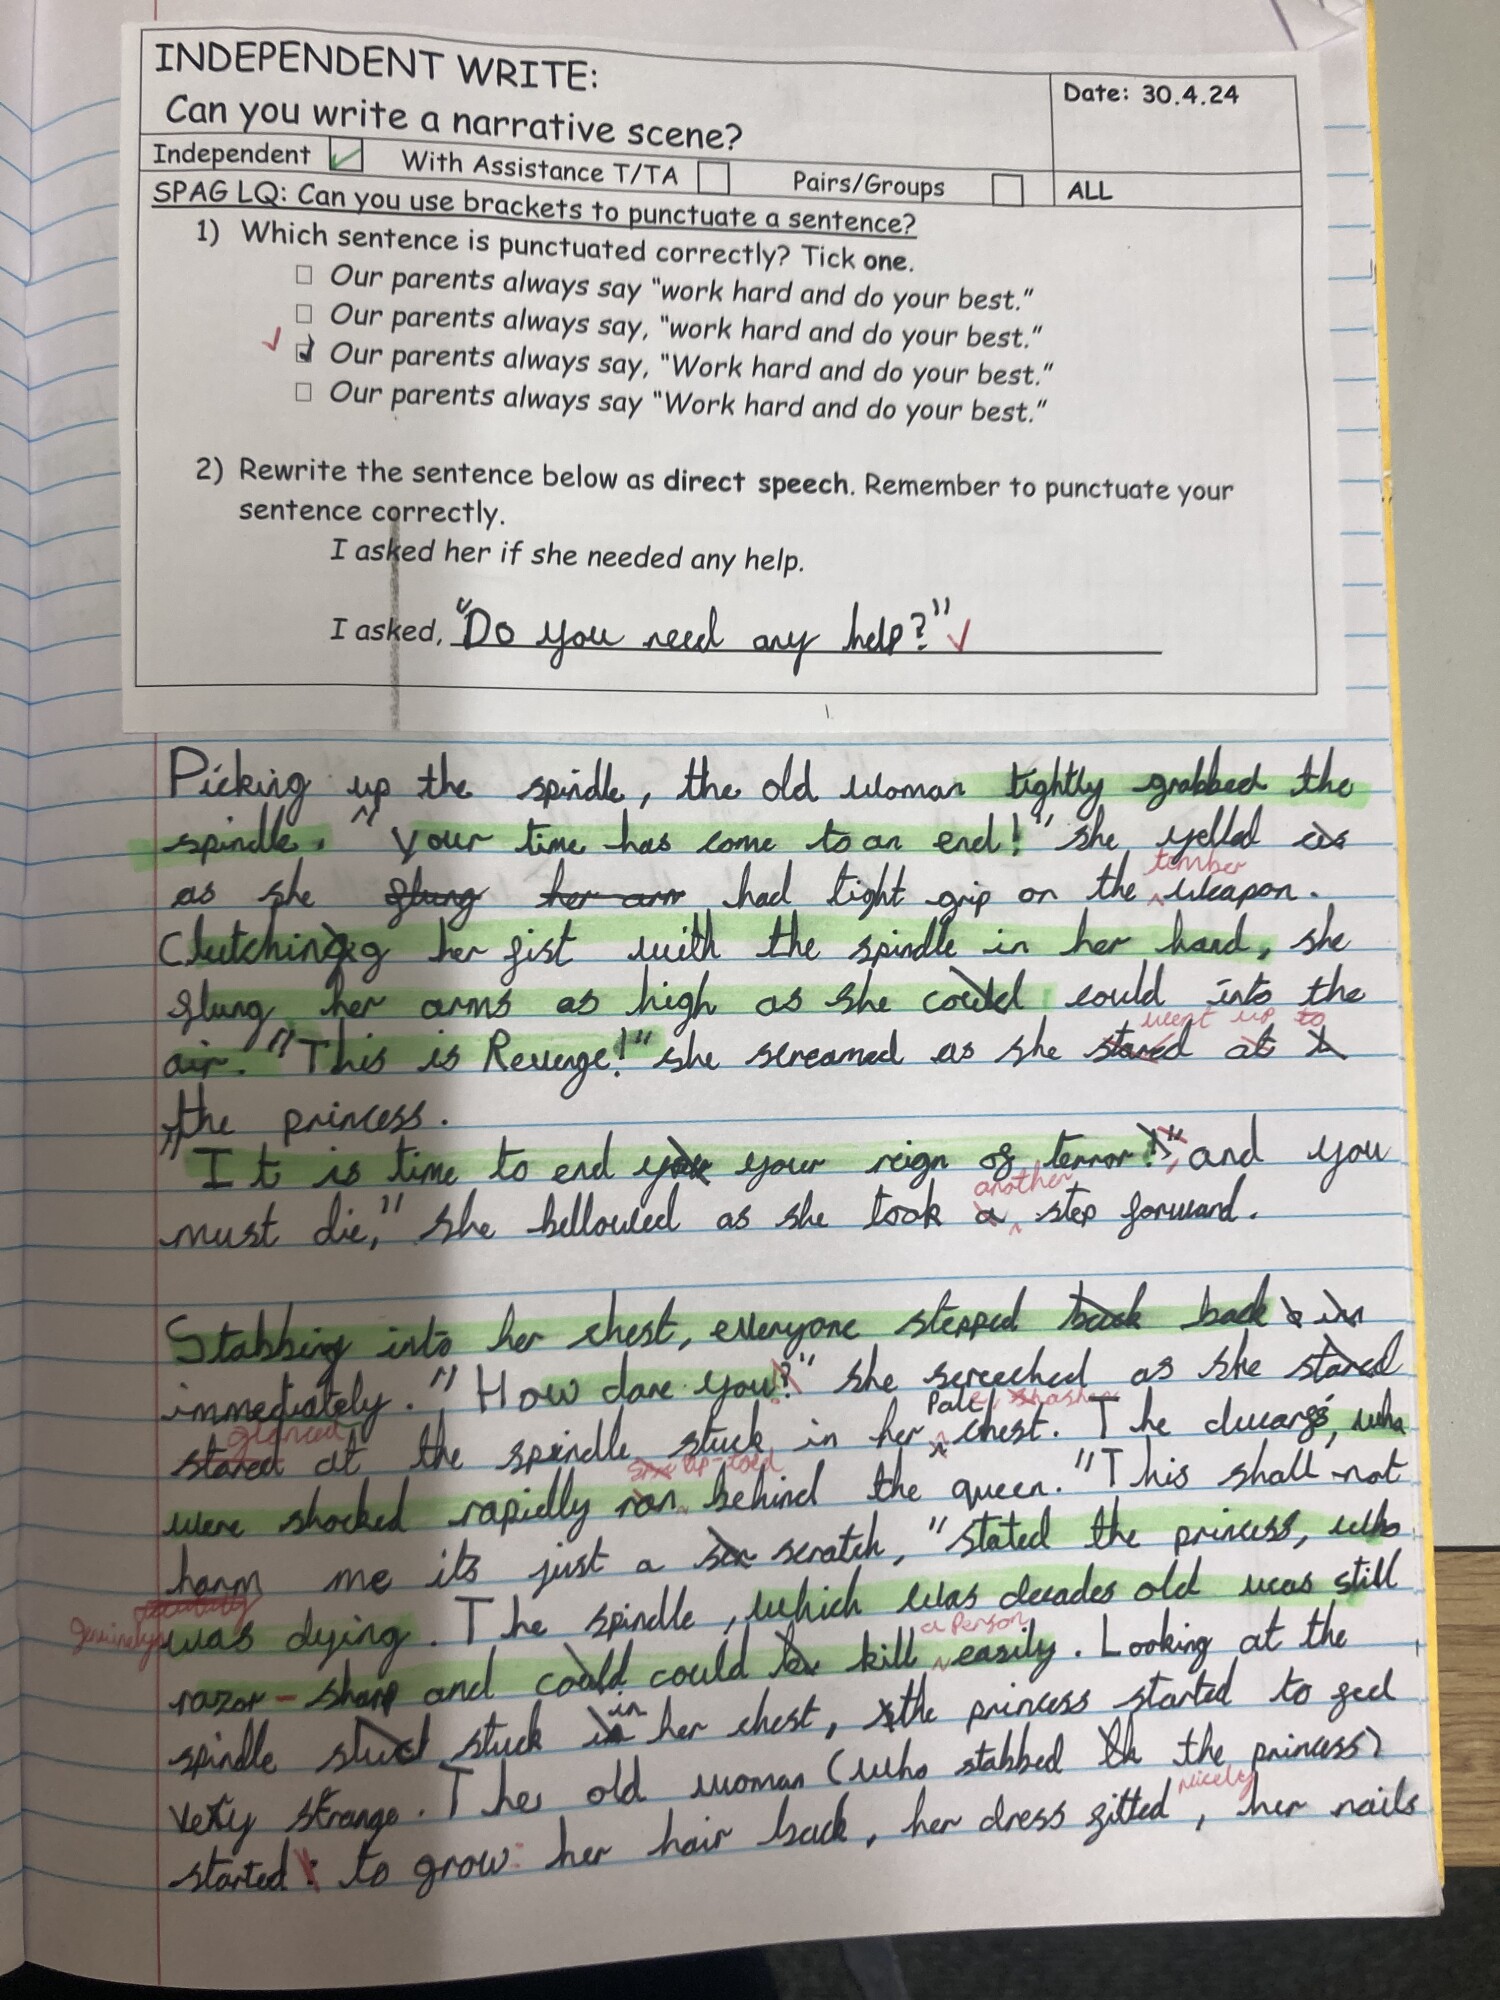 INDEPENDENT WRITE:
Can you write a narrative scene?
Date: 30.4.24
Independent With Assistance T/TA Pairs/Groups ALL
SPAG LQ: Can you use brackets to punctuate a sentence?
1) Which sentence is punctuated correctly? Tick one.
Our parents always say "work hard and do your best."
Our parents always say, "work hard and do your best."
Our parents always say, "Work hard and do your best."
Our parents always say "Work hard and do your best."
2) Rewrite the sentence below as direct speech. Remember to punctuate your
sentence correctly.
I asked her if she needed any help.
I asked, "Do you need any help?"
Picking up the spindle, the old woman tightly grabbed the
spindle. "Your time has come to an end!" she yelled
as she flung her arm had tight grip on the timber weapon.
Clutching her fist with the spindle in her hand, she
flung her arms as high as she could could into the
air. "This is Revenge!" she screamed as she stared at went up to
the princess.
"It is time to end your reign of terror!", and you
must die," she bellowed as she took a another step forward.
Stabbing into her chest, everyone stepped back back in
immediately. "How dare you?" she screeched as she stared
stared glanced at the spindle stuck in her Pale chest. The dwarfs, who
were shocked rapidly ran tip-toed behind the queen. "This shall not
harm me its just a scratch," stated the princess, who
genuinely was dying. The spindle, which was decades old was still
razor-sharp and could could kill a Person easily. Looking at the
spindle stuck stuck in in her chest, the princess started to feel
very strange. The old woman (who stabbed the princess)
started: to grow: her hair back, her dress fitted nicely, her nails